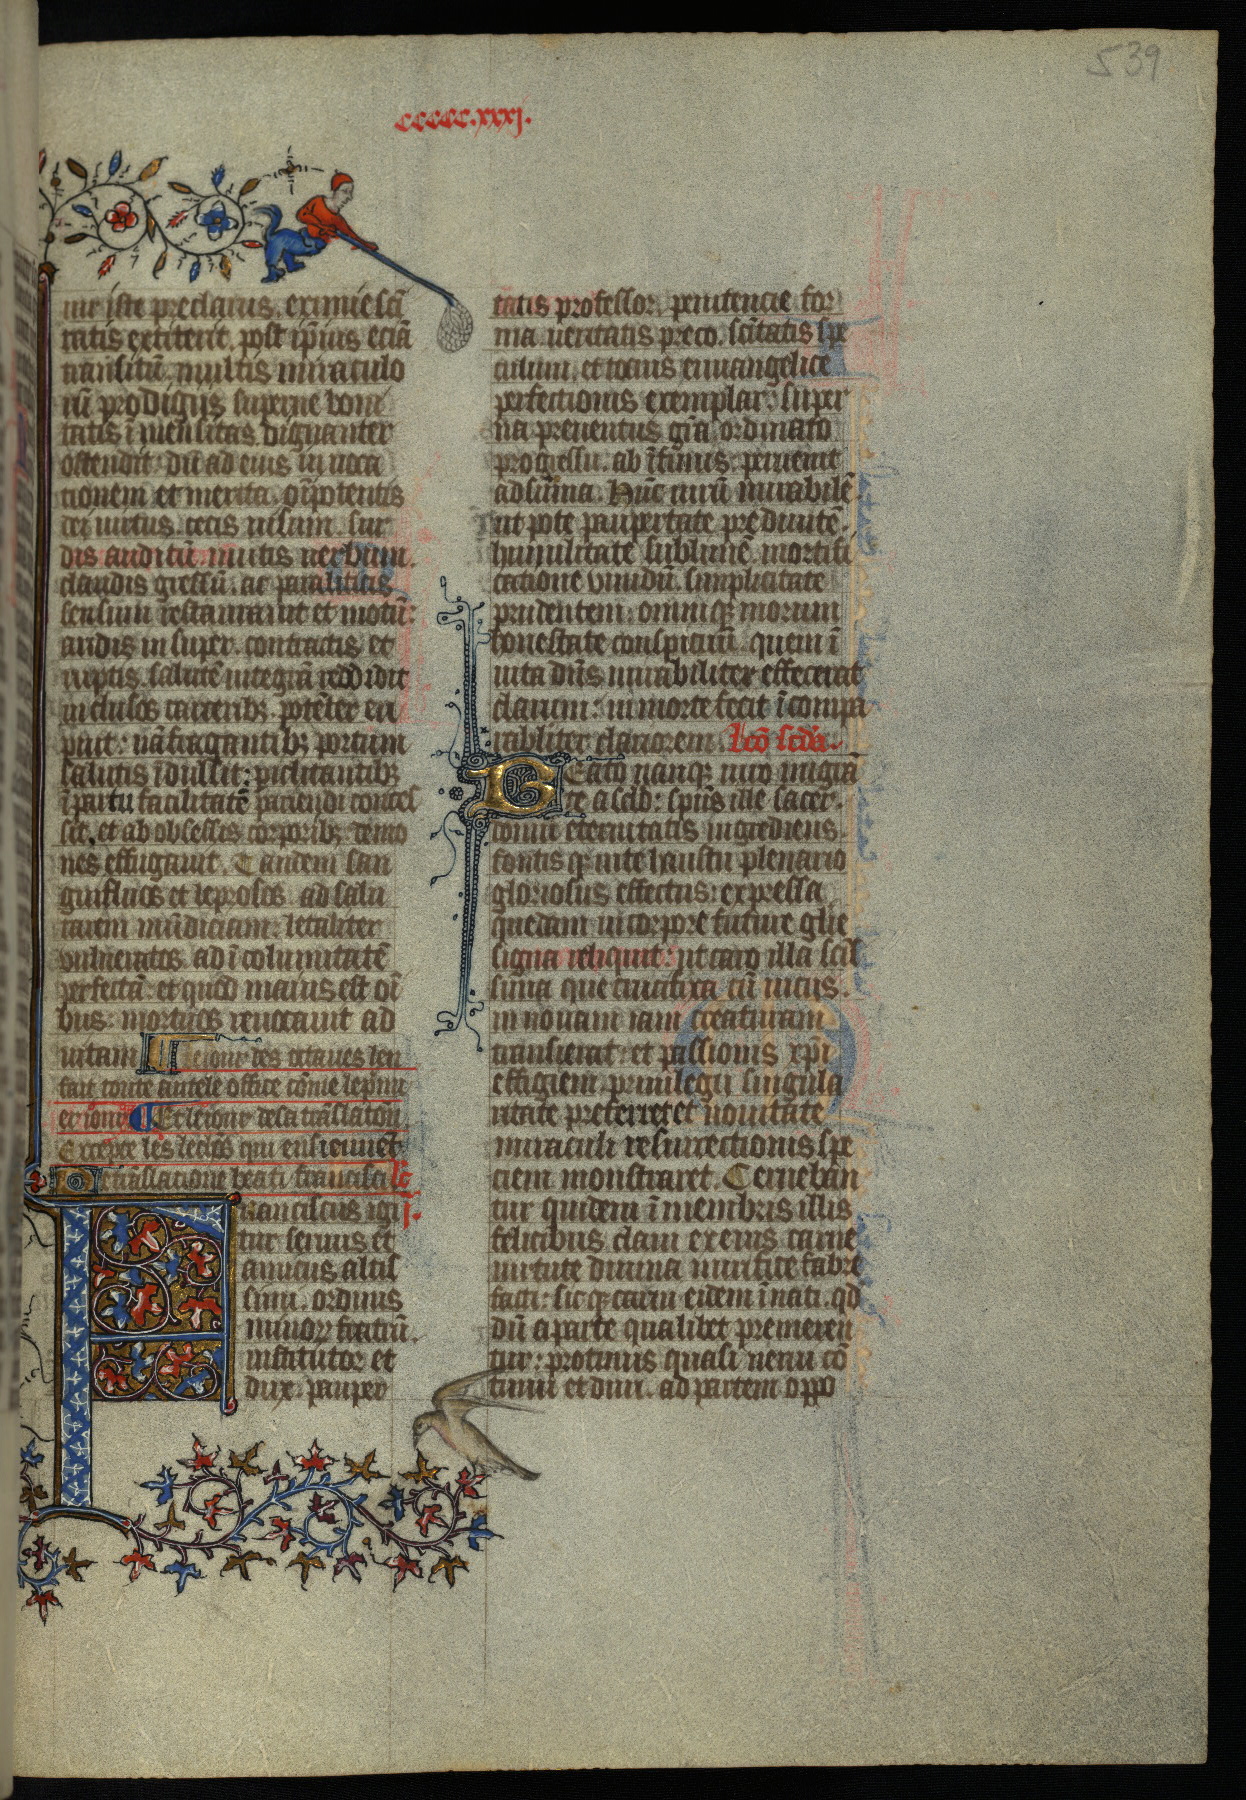 539
ccccc.xxxj.
nir iste preclarus. eximie scī
tatis extiterit. post ip̄ius eciā
transitū. multis miraculo
rū prodigiis superne boni
tatis īmensitas dignanter
ostendit. dū ad eius inuoca
tionem et merita. oīpotentis
dei uirtus. cecis uisum. sur
dis auditū. mutis uerbum.
claudis gressū. ac paraliticis
sensum restaurauit et motū:
aridis insuper. contractis et
ruptis. salutē integrā reddidit
inclusos carceribꝫ potēter eri
puit: naufragantibꝫ portum
salutis īdulsit: periclitantibꝫ
ī partu facilitatē pariendi conces
sit. et ab obsessis corporibꝫ demo
nes effugauit. Tandem san
guifluos et leprosos ad salu
tarem mūdiciam: letaliter
vulneratos. ad īcolumitatē
perfectā: et quod maius est oī
bus: mortuos reuocauit ad
uitam Le iour des octaues len
fait toute autele office cōme le prim
er iour. Et le iour de la trāslatōn
Excepte les lecōs qui ensieuuēt
De trāslatione beati francisci lc̄
Franciscus igi j.
tur seruus et
amicus altis
simi. ordinis
minorꝝ fratrū.
institutor et
dux. pauper
tatis professor. penitencie for
ma. ueritatis preco. scītatis spe
culum. et tocius euuangelice
perfectionis exemplar: super
na preuentus grā. ordinato
progressu. ab īfimis. peruenit
ad sūma. Hūc uirū mirabilē.
ut pote paupertate pre diuitē.
humilitate sublimē. mortifi
catione viuidū. simplicitate
prudentem: omniqꝫ morum
honestate conspicuū. quem ī
uita dn̄s mirabiliter effecerat
clarum: in morte fecit īcompa
rabiliter clariorem. Lcō scd̄a.
Beato nanqꝫ uiro migrā
te a scl̄o: spūs ille sacer.
domū eternitatis ingrediens.
fontisqꝫ uite haustu plenario
gloriosus effectus: expressa
quedam in corpore future glīe
signa reliquit: ut caro illa sc̄is
sima que crucifixa cū uicijs.
in nouam iam creaturam
transierat: et passionis xp̄i
effigiem. priuilegii singula
ritate preferret et nouitate
miraculi resurrectionis spe
ciem monstraret. Cerneban
tur quidem ī membris illis
felicibus claui ex eius carne
uirtute diuina mirifice fabre
facti: sicqꝫ carni eidem īnati. qd̄
dū a parte qualibet premeren
tur: protinus quasi nerui cō
tinui et duri. ad partem oppo